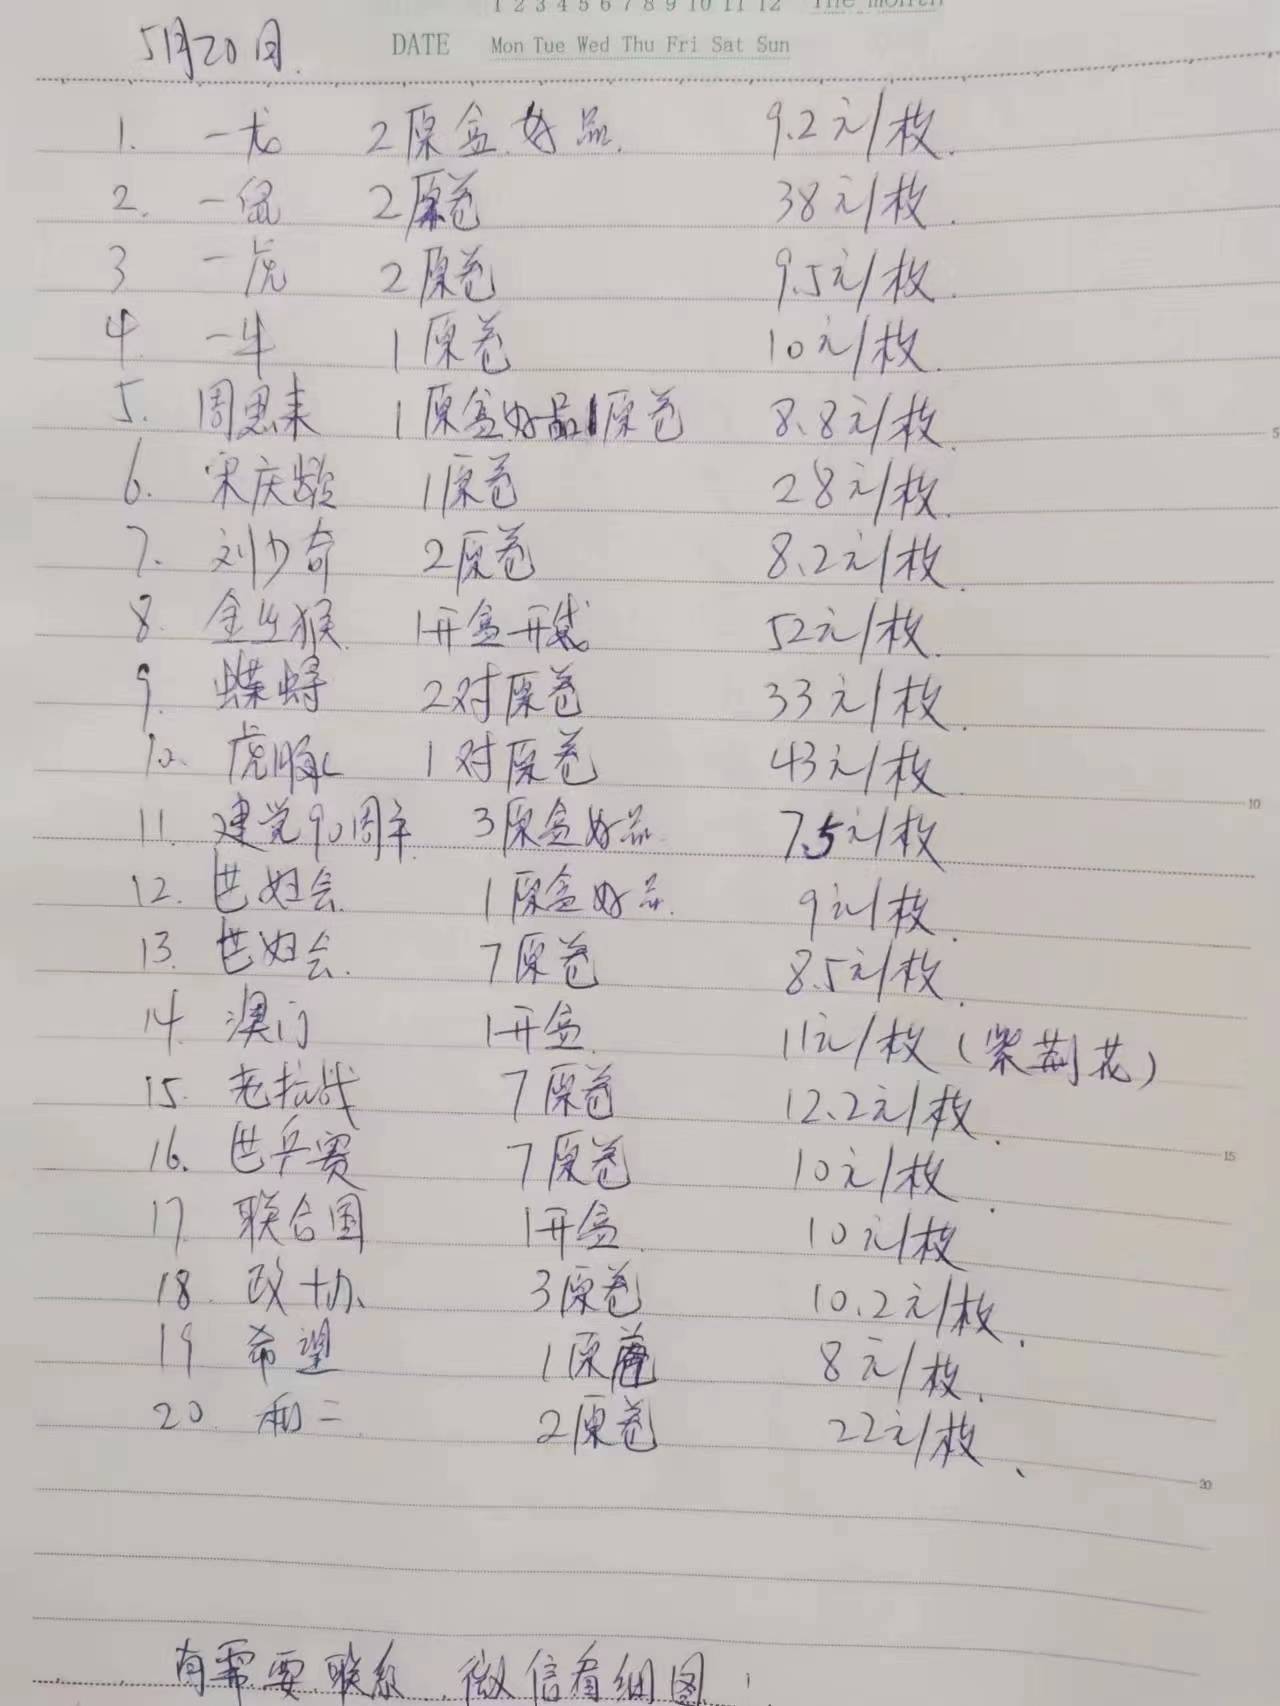 1 2 3 4 5 6 7 8 9 10 11 12 The month
5月20日.
DATE Mon Tue Wed Thu Fri Sat Sun
1. 一龙 2原盒.好品. 9.2元/枚.
2. 一鼠 2原卷 38元/枚.
3 一虎 2原卷 9.5元/枚.
4. 一牛 1原卷 10元/枚.
5. 周恩来 1原盒好品1原卷 8.8元/枚. 5
6. 宋庆龄 1原卷 28元/枚.
7. 刘少奇 2原卷 8.2元/枚.
8. 金丝猴 1开盒开袋 52元/枚.
9. 蝶蟳 2对原卷 33元/枚.
10. 虎豚 1对原卷 43元/枚. 10
11. 建党90周年. 3原盒好品. 7.5元/枚
12. 世妇会. 1原盒好品. 9元/枚.
13. 世妇会. 7原卷 8.5元/枚.
14. 澳门 1开盒. 11元/枚(紫荆花)
15. 老抗战 7原卷 12.2元/枚.
16. 世乒赛 7原卷 10元/枚. 15
17 联合国 1开盒. 10元/枚
18. 政协、 3原卷 10.2元/枚、
19 希望 1原卷 8元/枚、
20. 和二 2原卷 22元/枚、
20
有需要联系,微信看细图!